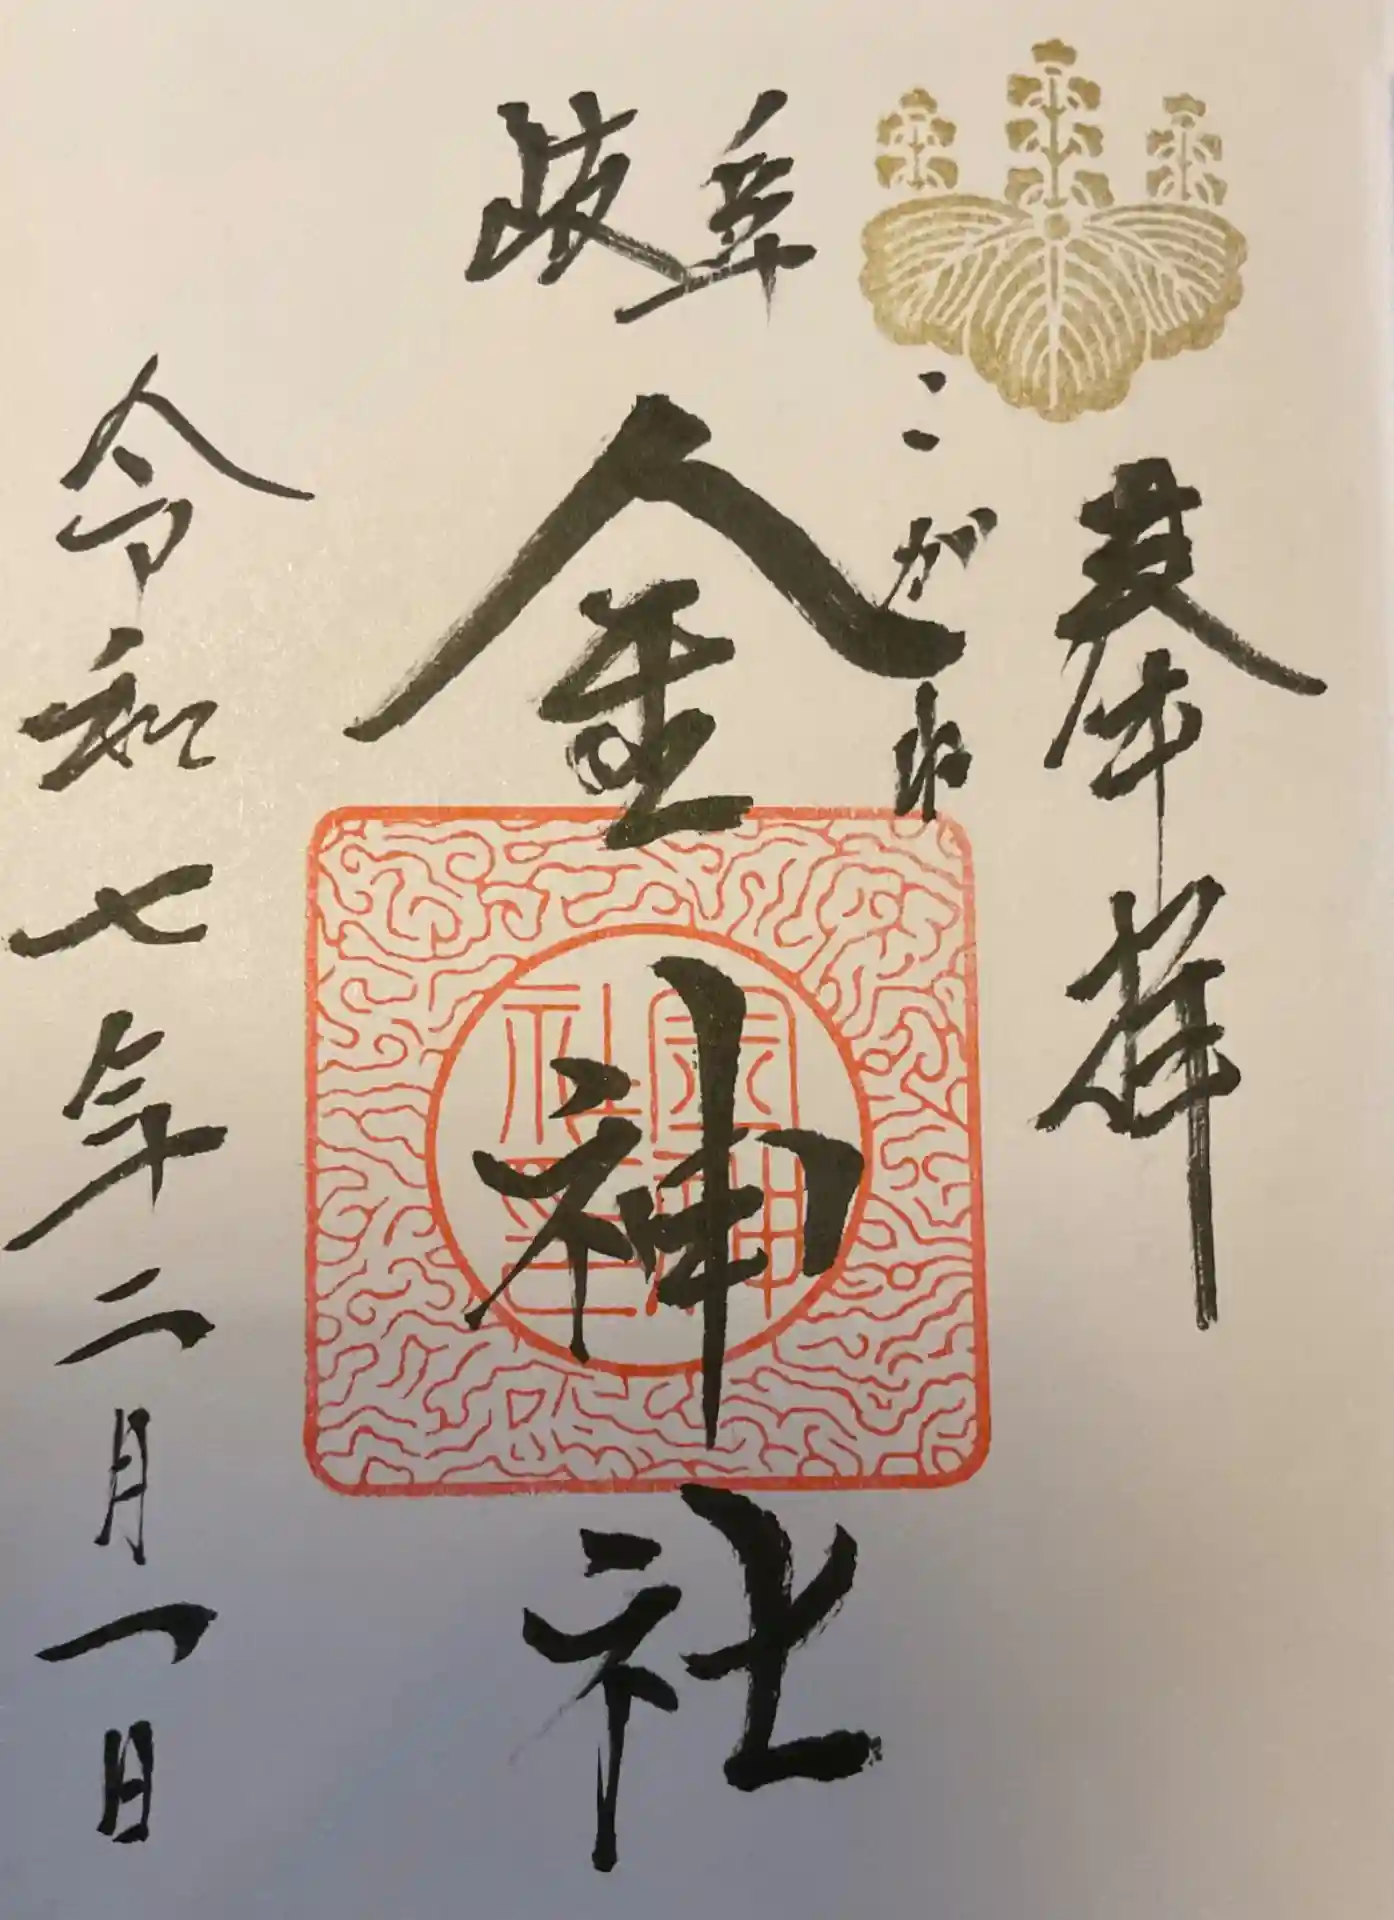 奉拝
こがね
岐阜
金神社
金神社印
令和七年二月一日